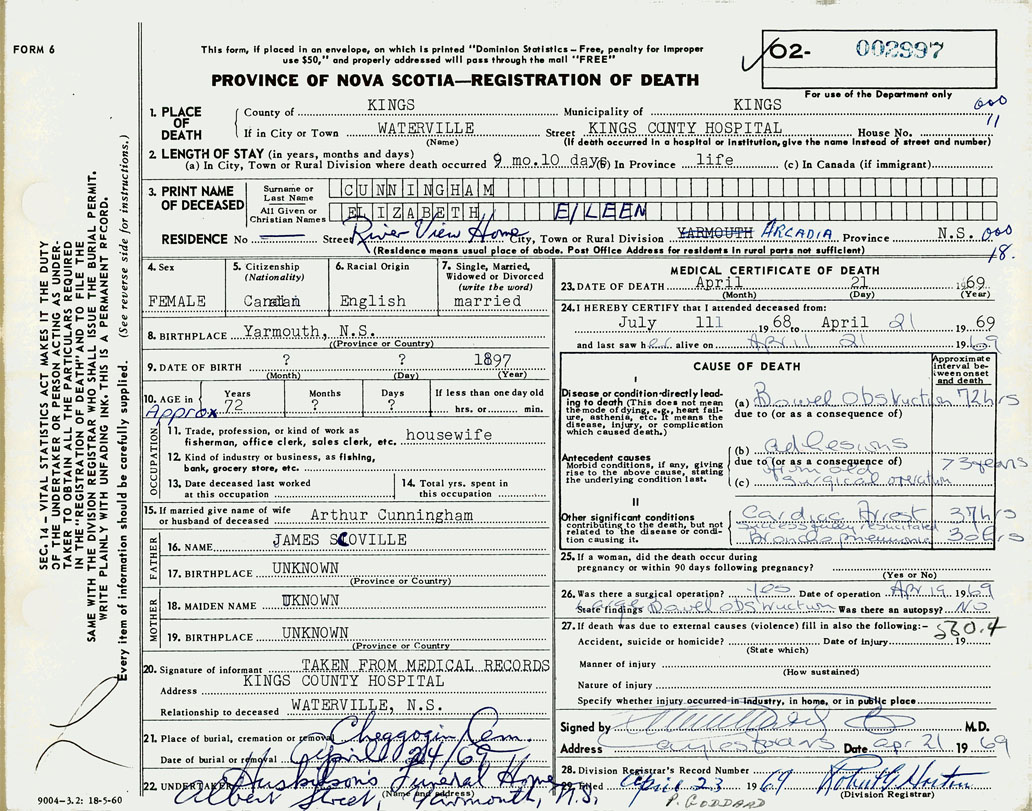 FORM 6
This form, if placed in an envelope, on which is printed "Dominion Statistics – Free, penalty for improper
use $50," and properly addressed will pass through the mail "FREE"
PROVINCE OF NOVA SCOTIA—REGISTRATION OF DEATH
02- 002997
For use of the Department only
SEC. 14 – VITAL STATISTICS ACT MAKES IT THE DUTY
OF THE UNDERTAKER OR PERSON ACTING AS UNDER-
TAKER TO OBTAIN ALL THE PARTICULARS REQUIRED
IN THE "REGISTRATION OF DEATH" AND TO FILE THE
SAME WITH THE DIVISION REGISTRAR WHO SHALL ISSUE THE BURIAL PERMIT.
WRITE PLAINLY WITH UNFADING INK. THIS IS A PERMANENT RECORD.
Every item of information should be carefully supplied. (See reverse side for instructions.)
1. PLACE OF DEATH County of KINGS Municipality of KINGS 000
If in City or Town WATERVILLE Street KINGS COUNTY HOSPITAL House No. 11
(Name) (If death occurred in a hospital or institution, give the name instead of street and number)
2. LENGTH OF STAY (in years, months and days)
(a) In City, Town or Rural Division where death occurred 9 mo.10 days (b) In Province life (c) In Canada (if immigrant)
3. PRINT NAME OF DECEASED Surname or Last Name CUNNINGHAM
All Given or Christian Names ELIZABETH EILEEN
RESIDENCE No Street River View Home City, Town or Rural Division YARMOUTH ARCADIA Province N.S. 000
(Residence means usual place of abode. Post Office Address for residents in rural parts not sufficient) 18.
4. Sex 5. Citizenship (Nationality) 6. Racial Origin 7. Single, Married, Widowed or Divorced (write the word)
FEMALE Canadian English married
8. BIRTHPLACE Yarmouth, N.S.
(Province or Country)
9. DATE OF BIRTH ? ? 1897
(Month) (Day) (Year)
10. AGE in Years Months Days If less than one day old
Approx 72 ? ? hrs. or min.
OCCUPATION
11. Trade, profession, or kind of work as
fisherman, office clerk, sales clerk, etc. housewife
12. Kind of industry or business, as fishing,
bank, grocery store, etc.
13. Date deceased last worked at this occupation 14. Total yrs. spent in this occupation
15. If married give name of wife
or husband of deceased Arthur Cunningham
FATHER
16. NAME JAMES SCOVILLE
17. BIRTHPLACE UNKNOWN
(Province or Country)
MOTHER
18. MAIDEN NAME UKNOWN
19. BIRTHPLACE UNKNOWN
(Province or Country
20. Signature of informant TAKEN FROM MEDICAL RECORDS
Address KINGS COUNTY HOSPITAL
Relationship to deceased WATERVILLE, N.S.
21. Place of burial, cremation or removal Cheggogin Cem.
Date of burial or removal April 24/69
22. UNDERTAKER Funeral Home
(Name and address)
Albert Street, Yarmouth, N.S.
9004-3.2: 18-5-60
MEDICAL CERTIFICATE OF DEATH
23. DATE OF DEATH April 21 1969
(Month) (Day) (Year)
24. I HEREBY CERTIFY that I attended deceased from:
July 111 1968 to April 21 1969
and last saw her alive on April 21 1969
CAUSE OF DEATH
Approximate interval between onset and death
I
Disease or condition directly leading to death (This does not mean the mode of dying, e.g., heart failure, asthenia, etc. It means the disease, injury, or complication which caused death.)
(a) Bowel Obstruction 72hrs
due to (or as a consequence of)
Antecedent causes
Morbid conditions, if any, giving rise to the above cause, stating the underlying condition last.
(b) adhesions
due to (or as a consequence of)
from old
(c) surgical operation
II
Other significant conditions contributing to the death, but not related to the disease or condition causing it.
Cardiac Arrest 37hrs
Successfully
Bronchopneumonia
25. If a woman, did the death occur during
pregnancy or within 90 days following pregnancy?
(Yes or No)
26. Was there a surgical operation? yes Date of operation Apr 19 1969
State findings Large Bowel obstruction Was there an autopsy? No
27. If death was due to external causes (violence) fill in also the following:– 560.4
Accident, suicide or homicide? Date of injury 19
(State which)
Manner of injury
(How sustained)
Nature of injury
Specify whether injury occurred in industry, in home, or in public place
Signed by M.D.
Address Aylesford Date apr 21 1969
28. Division Registrar's Record Number
29. Filed April 23 1969
(Division Registrar)
P. GODDARD